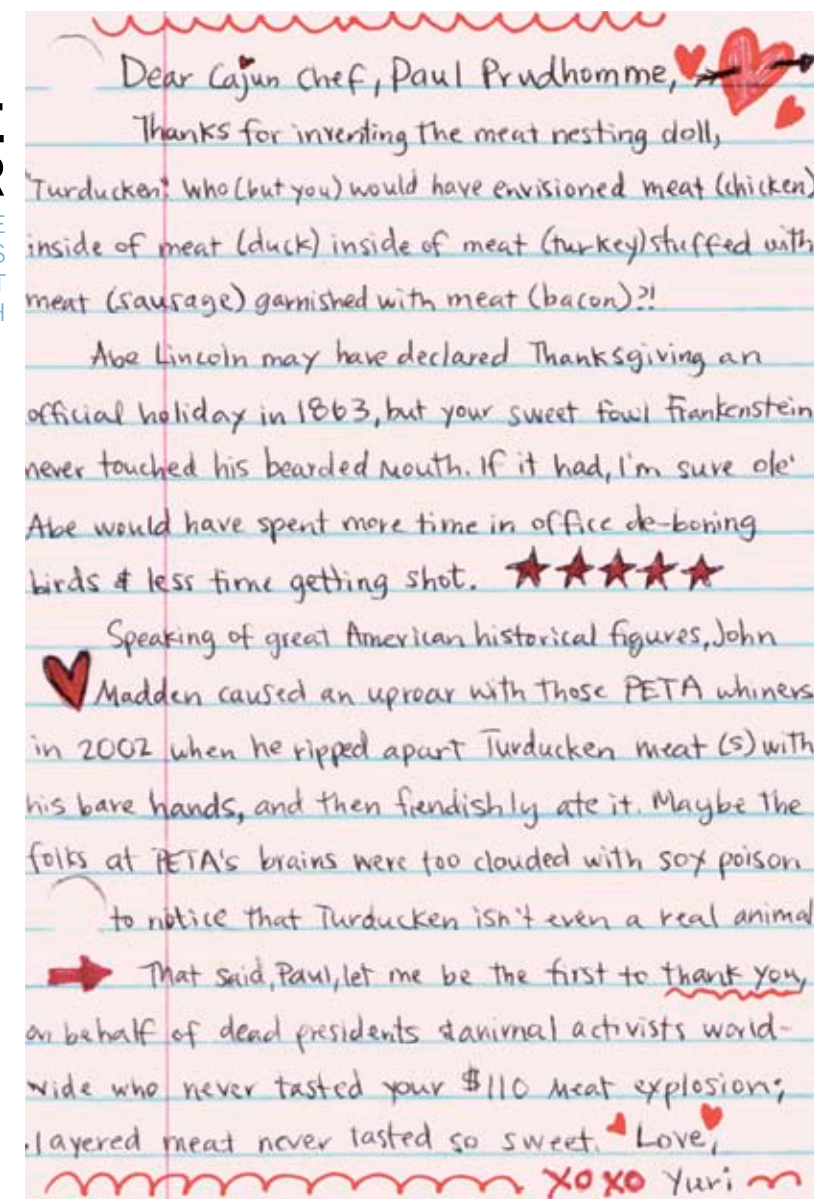 Dear Cajun Chef, Paul Prudhomme,
Thanks for inventing the meat nesting doll,
"Turducken". Who (but you) would have envisioned meat (chicken)
inside of meat (duck) inside of meat (turkey) stuffed with
meat (sausage) garnished with meat (bacon)?!
Abe Lincoln may have declared Thanksgiving an
official holiday in 1863, but your sweet fowl Frankenstein
never touched his bearded mouth. If it had, I'm sure ole'
Abe would have spent more time in office de-boning
birds & less time getting shot.
Speaking of great American historical figures, John
Madden caused an uproar with those PETA whiners
in 2002 when he ripped apart Turducken meat (s) with
his bare hands, and then fiendishly ate it. Maybe the
folks at PETA's brains were too clouded with soy poison
to notice that Turducken isn't even a real animal
That said, Paul, let me be the first to thank you,
on behalf of dead presidents & animal activists world-
wide who never tasted your $110 meat explosion;
layered meat never tasted so sweet. Love,
XOXO Yuri